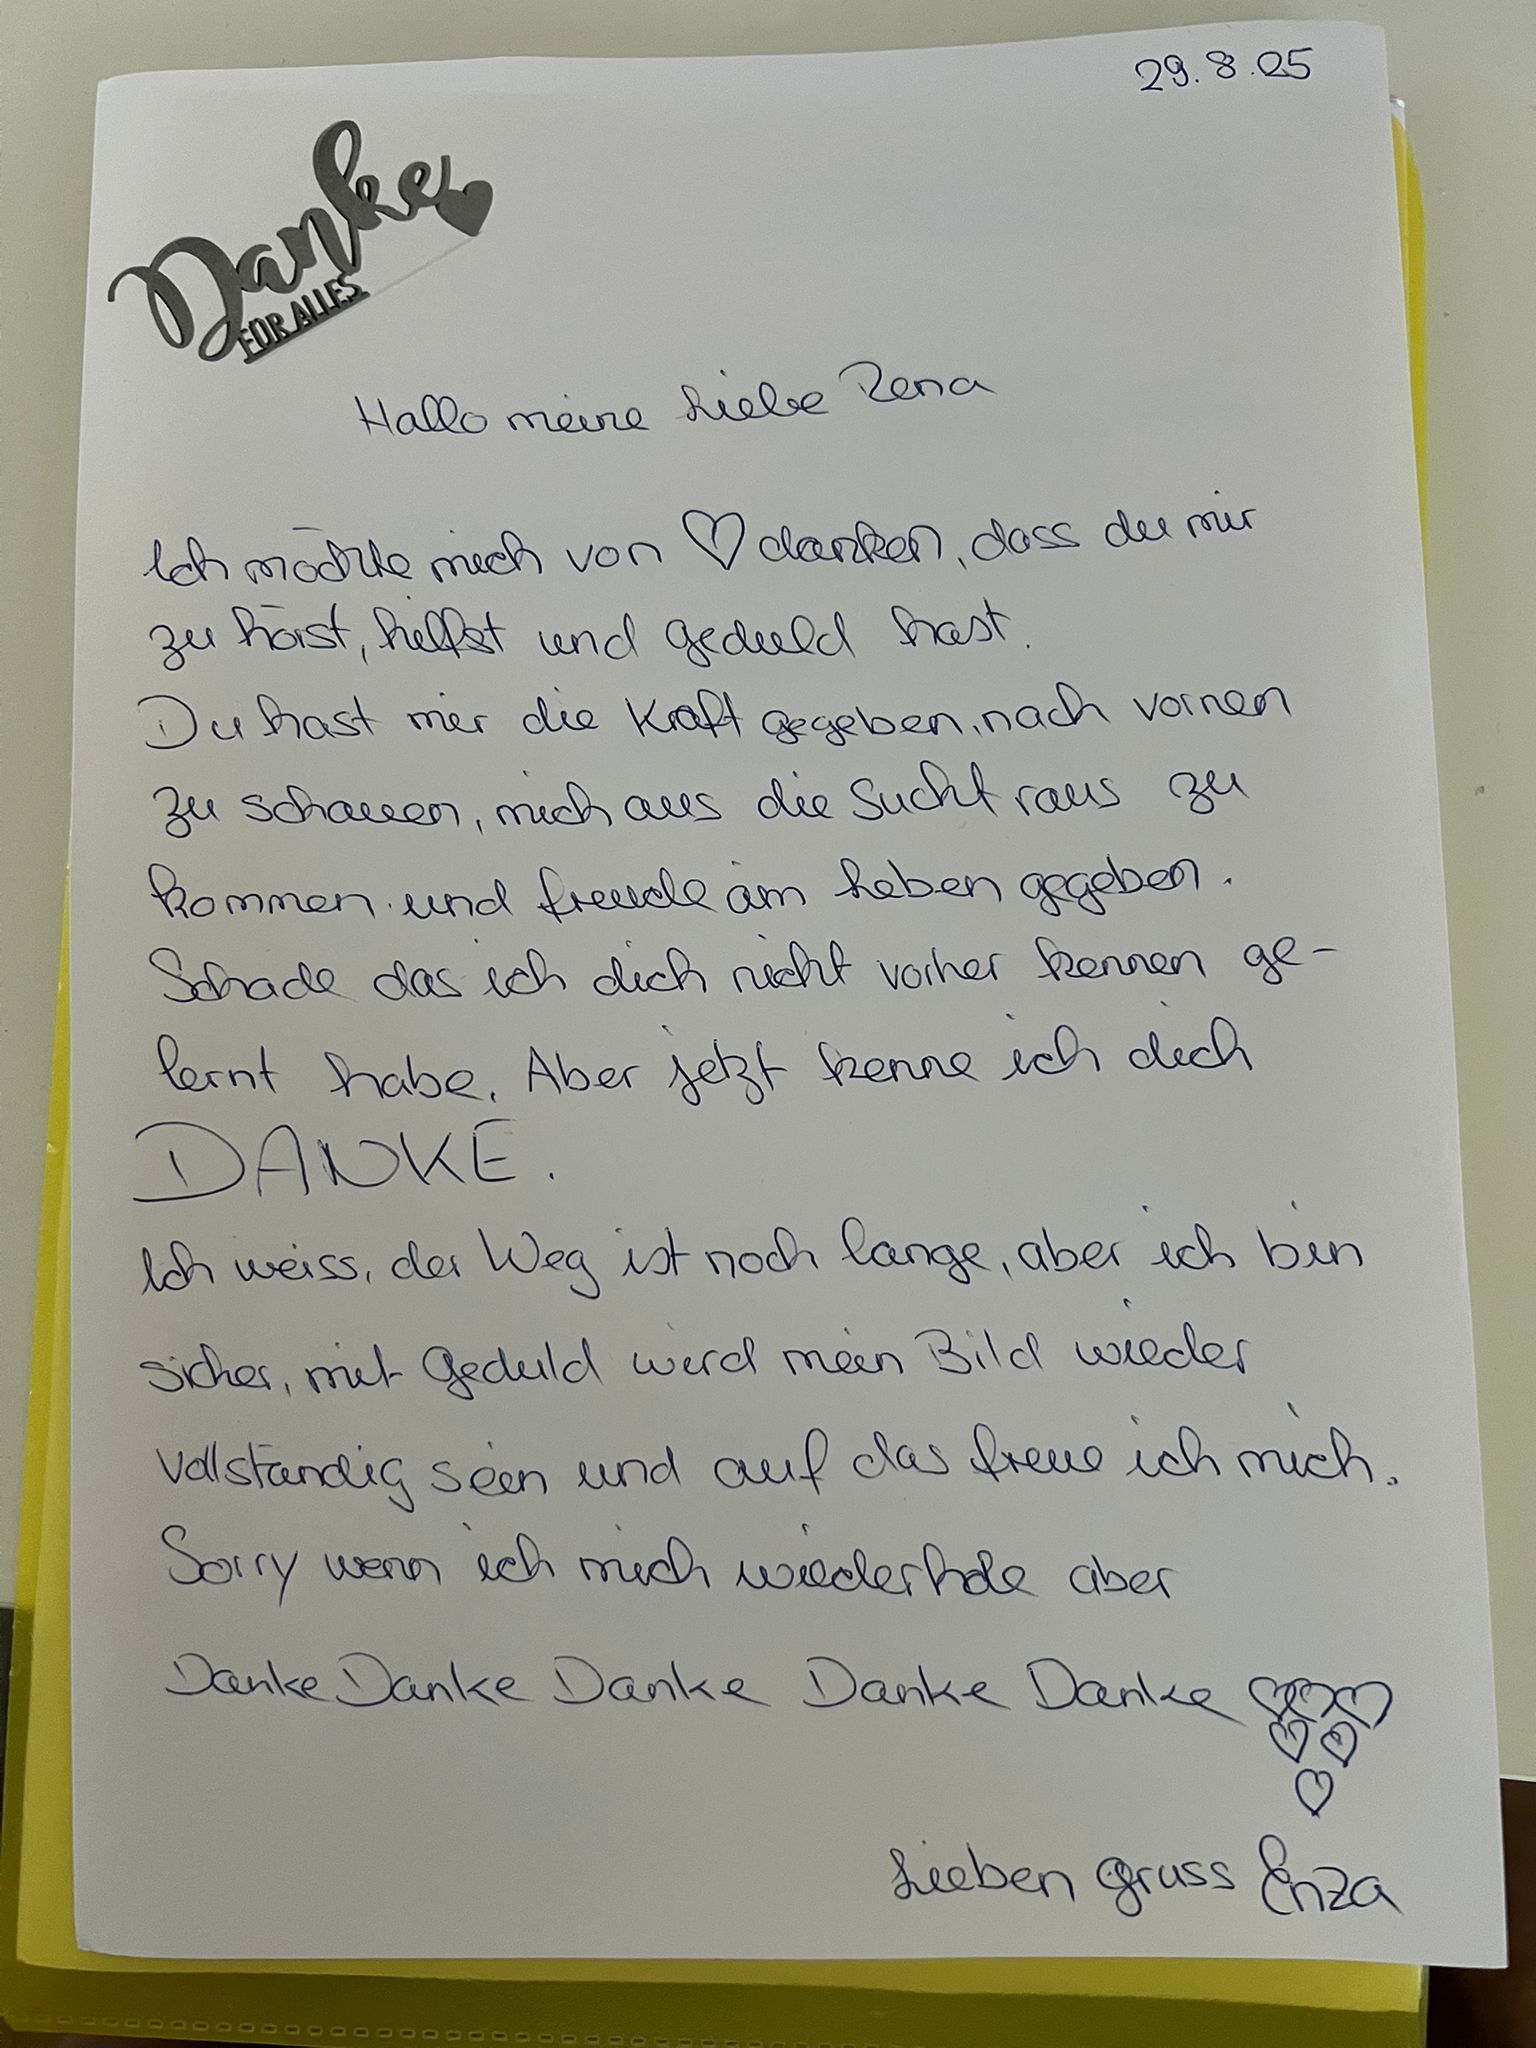 29.8.25
Danke
FÜR ALLES
Hallo meine Liebe Rena
Ich möchte mich von ♡ danken, dass du mir
zu hörst, hilfst und geduld hast.
Du hast mir die Kraft gegeben, nach vornen
zu schauen, mich aus die Sucht raus zu
kommen und freude am Leben gegeben.
Schade das ich dich nicht vorher kennen ge-
lernt habe. Aber jetzt kenne ich dich
DANKE.
Ich weiss, der Weg ist noch lange, aber ich bin
sicher, mit Geduld wird mein Bild wieder
vollständig sein und auf das freue ich mich.
Sorry wenn ich mich wiederhole aber
Danke Danke Danke Danke Danke ♡♡♡
♡♡
♡
Lieben Gruss Enza